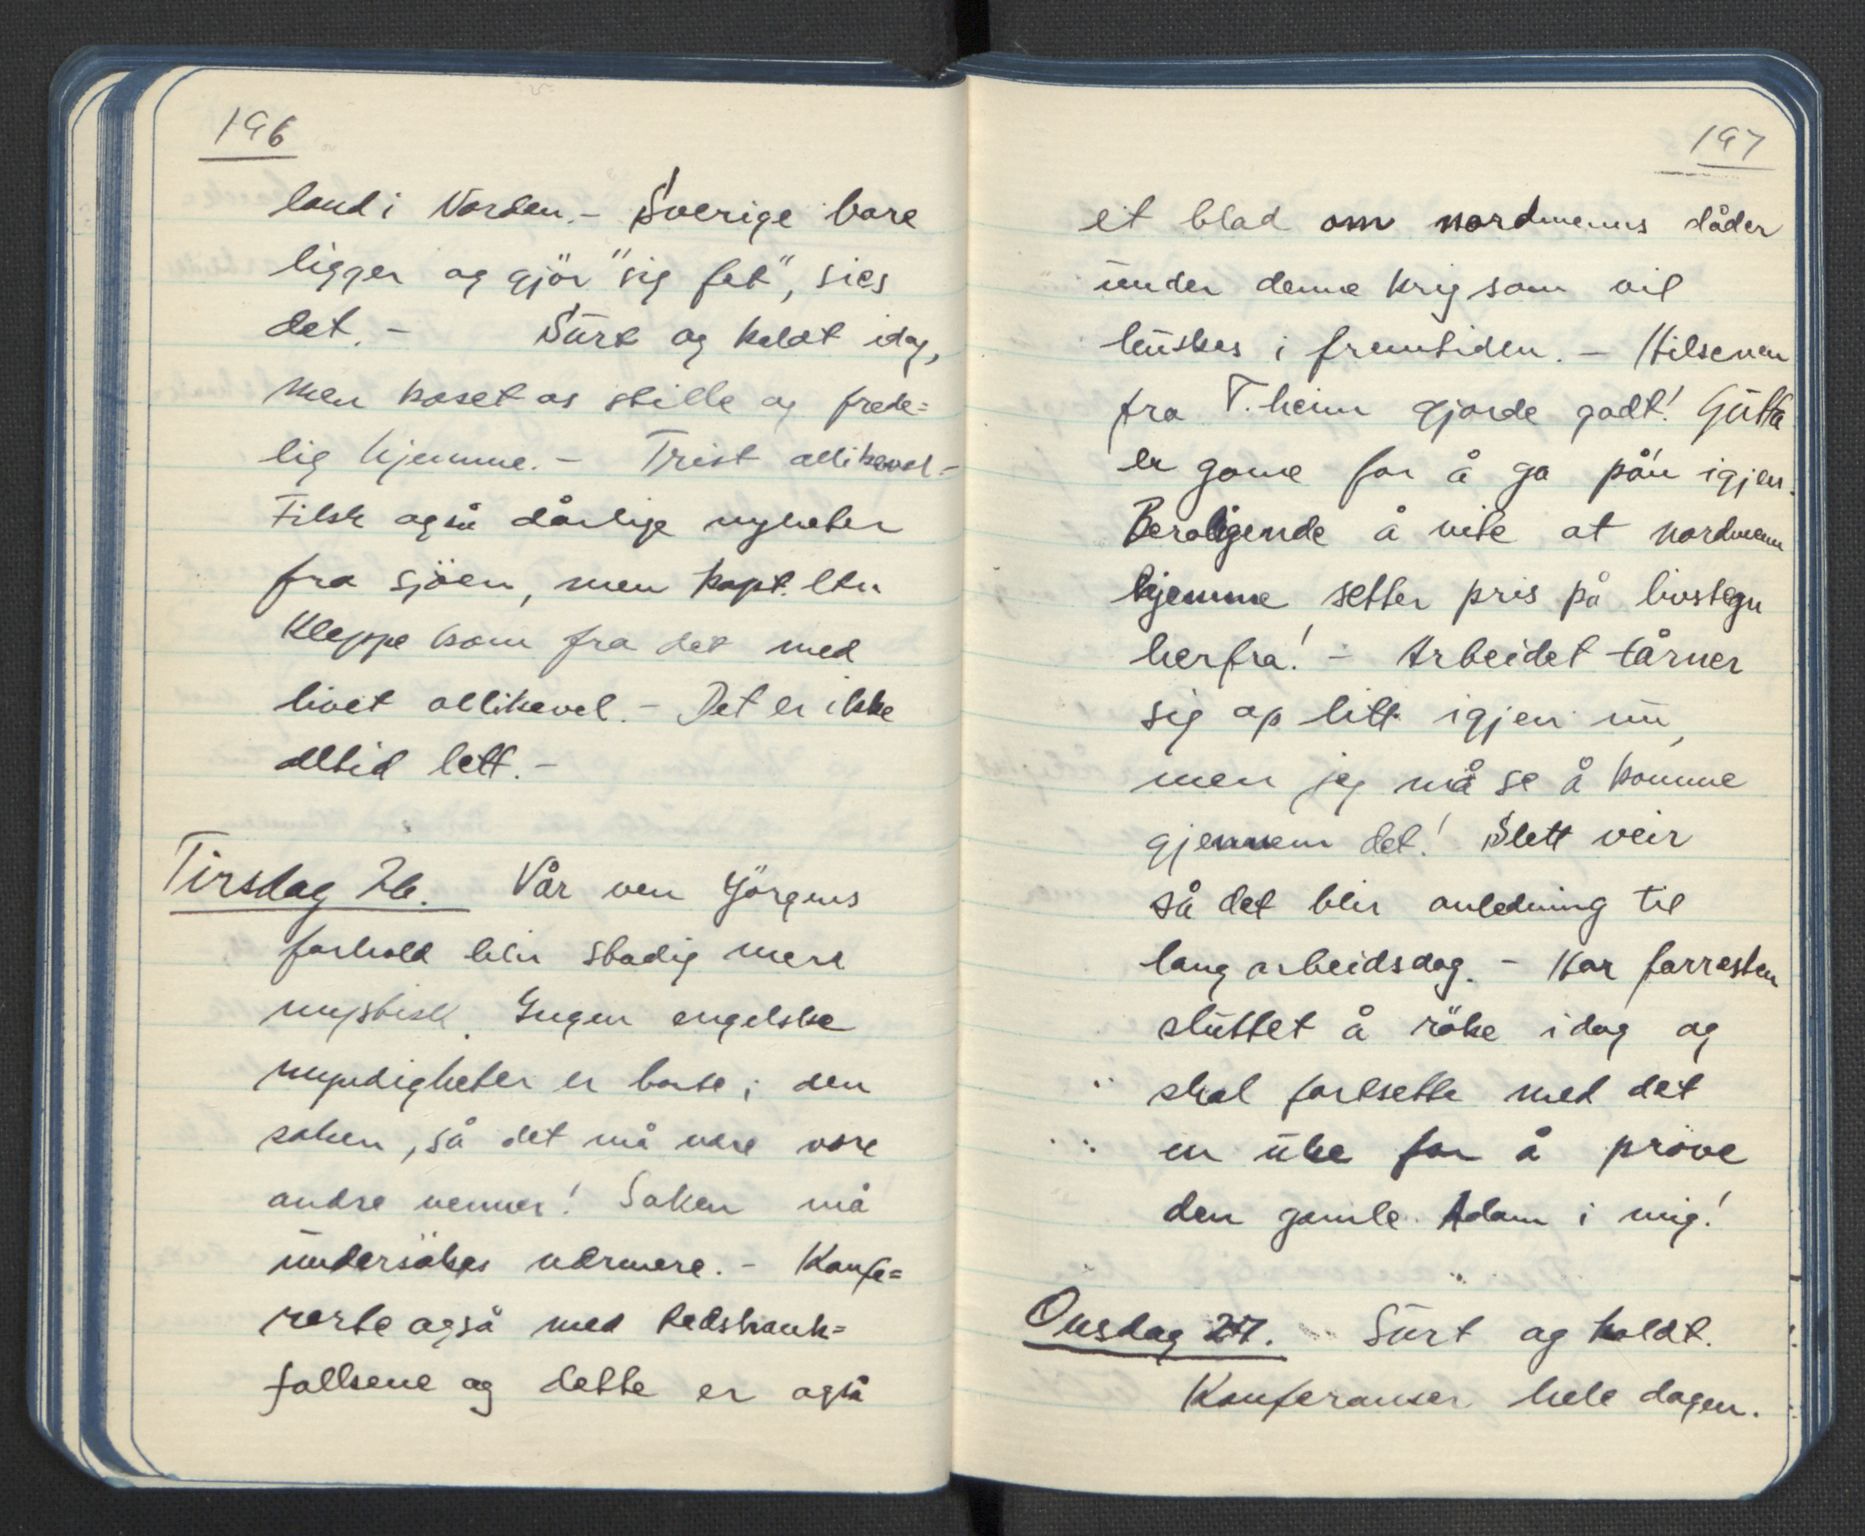 196
land i Norden. - Sverige bare
ligger og gjör "sig fet", sies
det. - Surt og koldt idag,
men koset os stille og frede=
lig hjemme. - Trist allikevel -
Fikk også dårlige nyheter
fra sjöen, men kapt. ltn
Kleppe kom fra det med
livet allikevel. - Det er ikke
alltid lett. -
Tirsdag 26. Vår ven Jörgens
forhold blir stadig mere
mystisk. Ingen engelske
myndigheter er borte i den
saken, så det må være våre
andre venner! Saken må
undersökes nærmere. - Konfe=
rerte også med Redshank=
folkene og dette er også
197
et blad om nordmenns dåder
under denne krig som vil
huskes i fremtiden. - Hilsenen
fra T.heim gjorde godt! Gutta
er game for å gå på'n igjen.
Beroligende å vite at nordmenn
hjemme setter pris på livstegn
herfra! - Arbeidet tårner
sig op litt igjen nu,
men jeg må se å komme
gjennem det! Slett veir
så det blir anledning til
lang arbeidsdag. - Har forresten
sluttet å röke idag og
skal fortsette med det
en uke for å pröve
den gamle Adam i mig!
Onsdag 27. Surt og koldt.
Konferanser hele dagen.